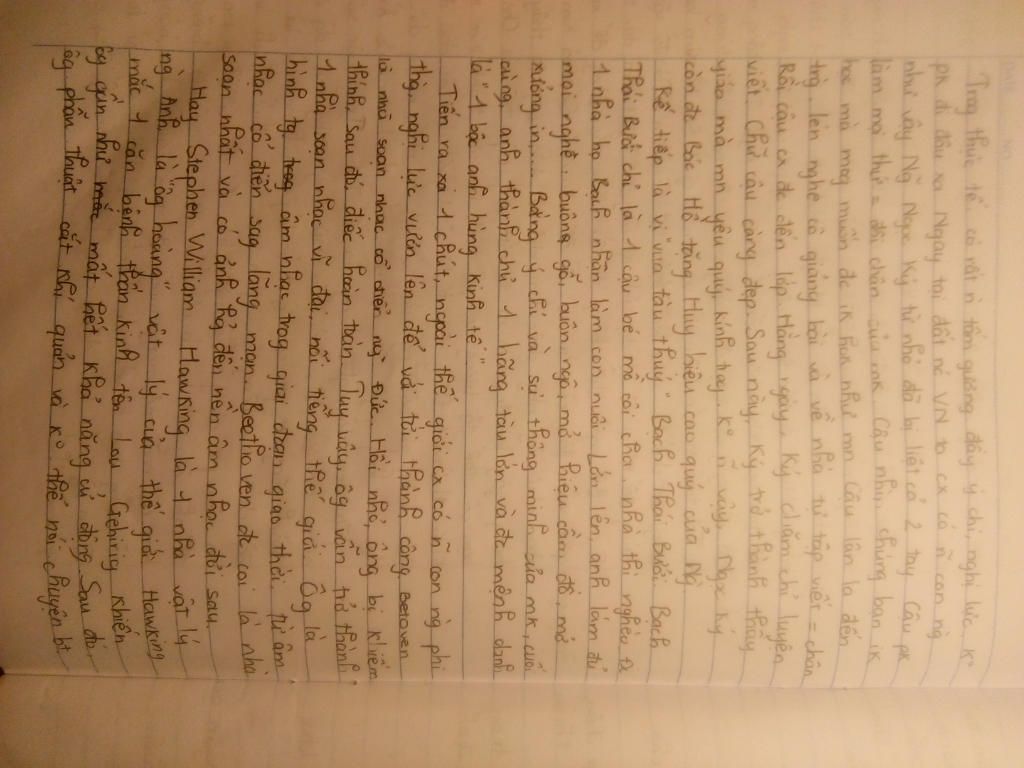 Trog thực tế, có rất n̄ tấm gương đầy ý chí, nghị lực, k°
pk đi đâu xa Ngay tại đất nc VN ta cx có n̄ con ng
như vậy Ng Ngọc Ký từ nhỏ đã bị liệt cả 2 tay Cậu pk
làm mọi thứ = đôi chân của mk Cậu nhìn chúng bạn đk
học mà mog muốn đc đk học như mn Cậu lân la đến
trg, lén nghe cô giảng bài và về nhà tự tập viết = chân
Rồi cậu cx đc đến lớp Hằng ngày, Ký chăm chỉ luyện
viết. Chữ cậu càng đẹp. Sau này, Ký trở thành thầy
giáo mà mn yêu quý, kính trọg k° n̄ vậy, Ngọc Ký
còn đc Bác Hồ tặng Huy hiệu cao quý của Ng
Kế tiếp là vị "vua tàu thuỷ" Bạch Thái Bưởi Bạch
Thái Bưởi chỉ là 1 cậu bé mồ côi cha, nhà thì nghèo đc
1 nhà họ Bạch nhận làm con nuôi. Lớn lên, anh làm đủ
mọi nghề: buôn gỗ, buôn ngô, mở hiệu cầm đồ, mở
xưởng in,... Bằng ý chí và sự thông minh của mk, cuối
cùng, anh thành chủ 1 hãng tàu lớn và đc mệnh danh
là "1 bậc anh hùng kinh tế"
Tiến ra xa 1 chút, ngoài thế giới cx có n̄ con ng phi
thg, nghị lực vươn lên để vs tới thành công Betoven
là nhà soạn nhạc cổ điển ng Đức. Hồi nhỏ, ông bị kiếm
thính, sau đó, điếc hoàn toàn Tuy vậy, ôg vẫn trở thành
1 nhà soạn nhạc vĩ đại, nổi tiếng thế giới Ôg là
hình tg trog âm nhạc trog giai đoạn giao thời, từ âm
nhạc cổ điển sag lãng mạn. Beethoven đc coi là nhà
soạn nhất và có ảnh hg đến nền âm nhạc đời sau.
Hay Stephen William Hawking là 1 nhà vật lý
ng Anh, là "ông hoàng" vật lý của thế giới Hawking
mắc 1 căn bệnh thần kinh tên Lou Gehirig khiến
ôg gần như mắc mất hết khả năng cử động Sau đó,
ôg phẫn thuật cắt khí quản và k° thể nói chuyện bt